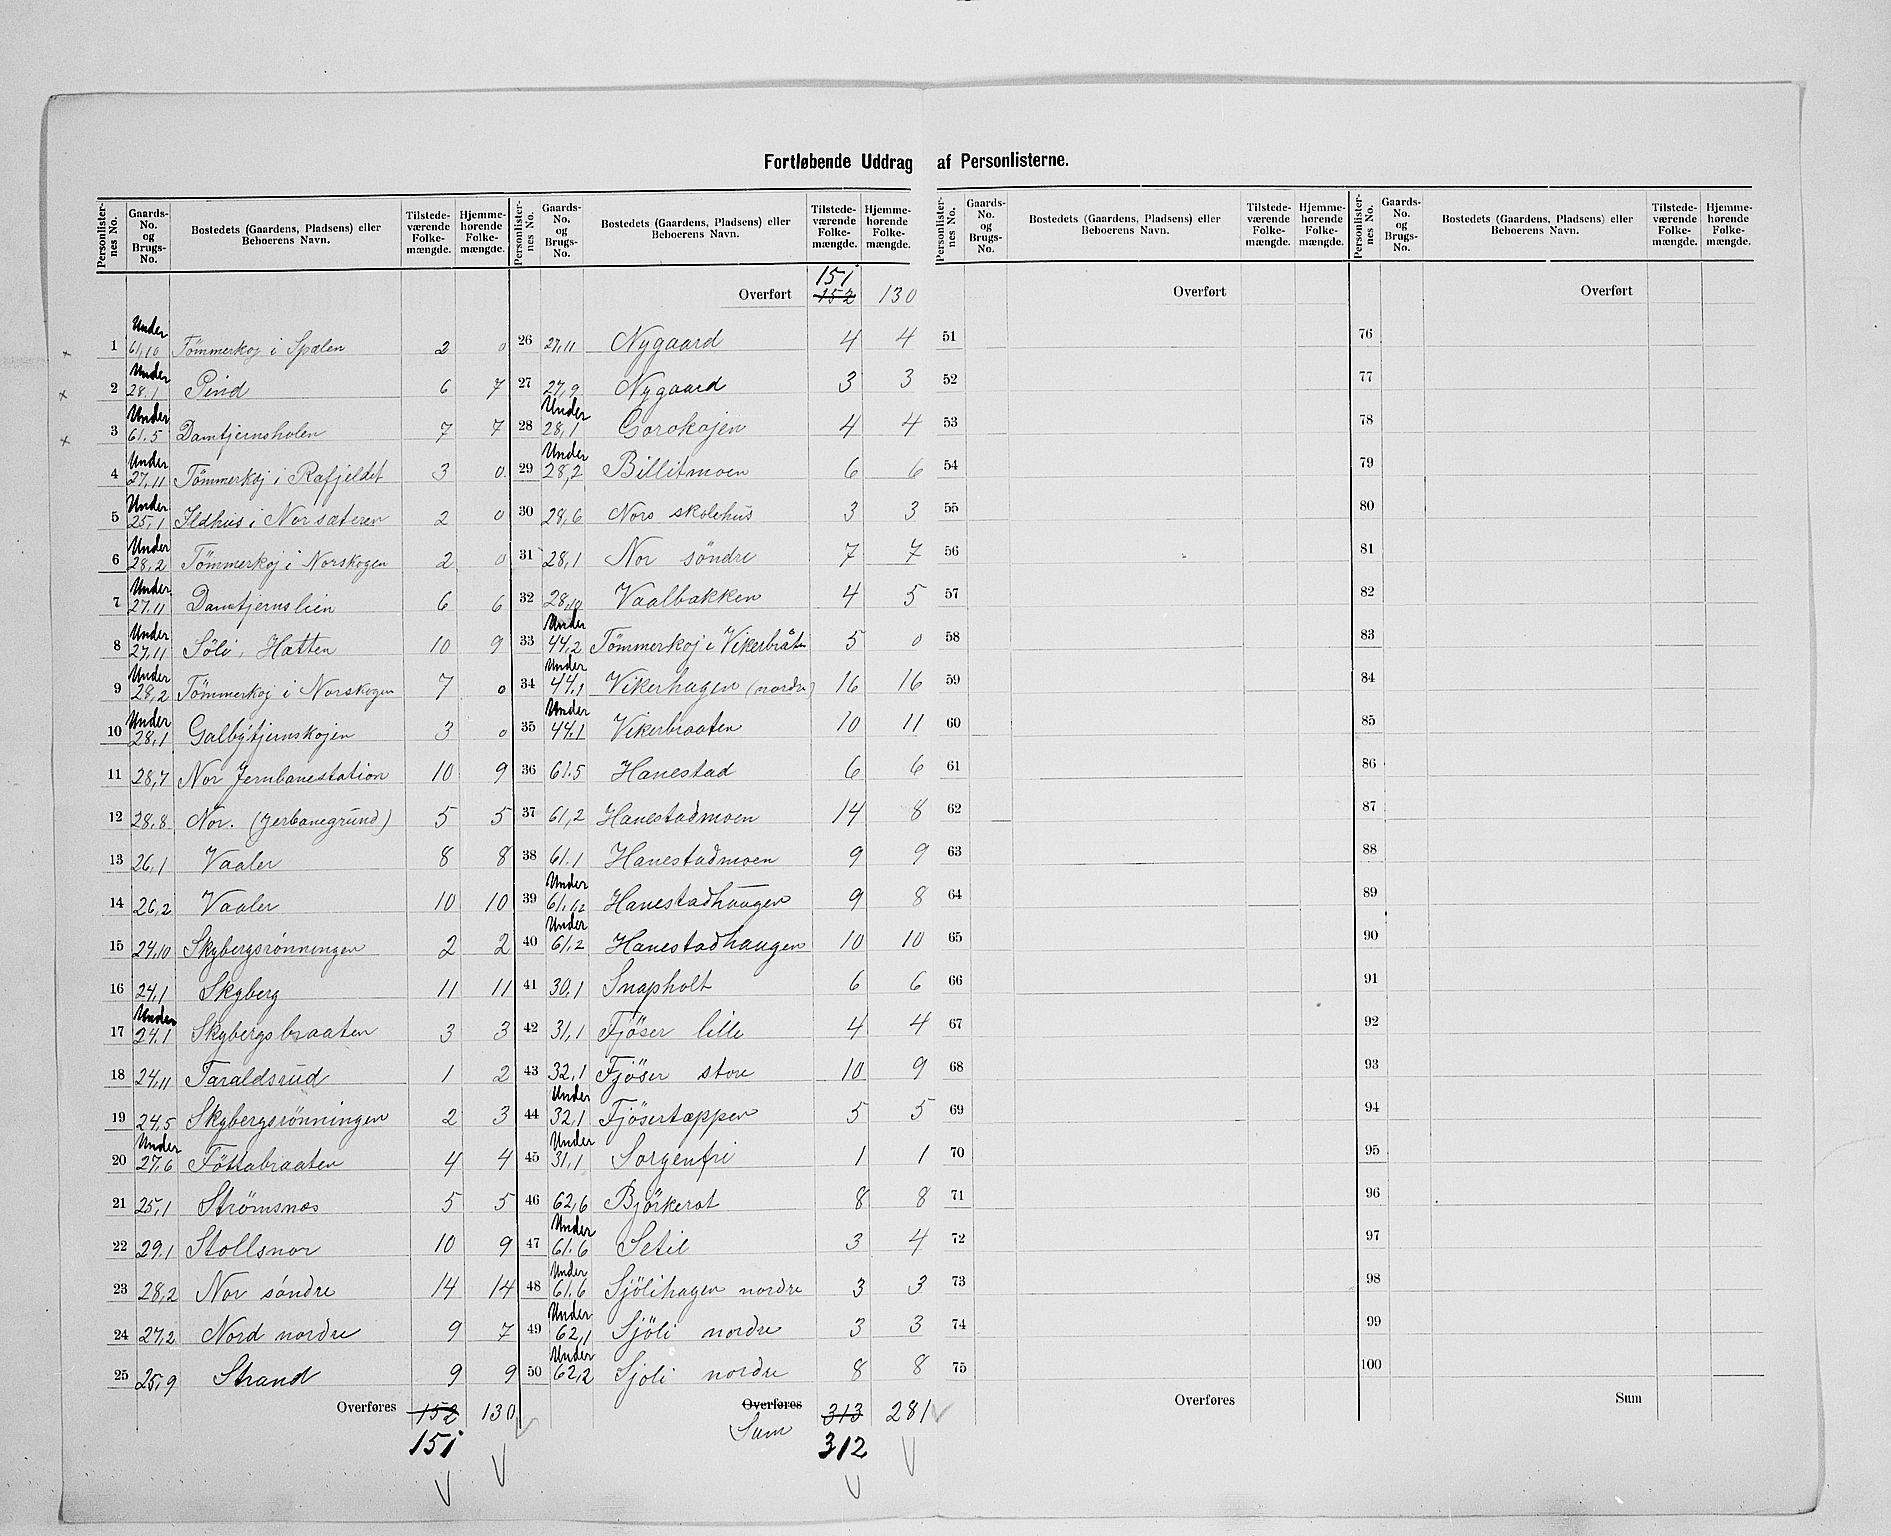 Fortløbende Uddrag af Personlisterne.
Personlister-nes No. | Gaards-No. og Brugs-No. | Bostedets (Gaardens, Pladsens) eller Beboerens Navn. | Tilstede-værende Folke-mængde. | Hjemme-hørende Folke-mængde.
1 Under 61,10 Tømmerkoj i Spælen 2 0
2 Under 28,1 Pind 6 7
3 Under 61.5 Damtjernsholen 7 7
4 Under 27,11 Tömmerkoj i Rafjeldet 3 0
5 Under 25,1 Ildhus i Nor sæteren 2 0
6 Under 28,2 Tömmerkoj i Norskogen 2 0
7 Under 27.11 Damtjernslien 6 6
8 Under 27,11 Söli, Hatten 10 9
9 Under 28,2 Tömmerkoj i Norskogen 7 0
10 Under 28,1 Galbytjernskojen 3 0
11 28,7 Nor Jernbanestation 10 9
12 28,8 Nor. (Jerbanegrund) 5 5
13 26,1 Vaaler 8 8
14 26,2 Vaaler 10 10
15 24,10 Skybergsrønningen 2 2
16 24,1 Skyberg 11 11
17 Under 24.1 Skybergsbraaten 3 3
18 24,11 Taraldsrud 1 2
19 24,5 Skybergsrönningen 2 3
20 Under 27,6 Föttabraaten 4 4
21 25,1 Strømsnæs 5 5
22 29,1 Stollsnor 10 9
23 28,2 Nor söndre 14 14
24 27,2 Nord nordre 9 7
25 25,9 Strand 9 9
Overføres 152 130
151
Personlister-nes No. | Gaards-No. og Brugs-No. | Bostedets (Gaardens, Pladsens) eller Beboerens Navn. | Tilstede-værende Folke-mængde. | Hjemme-hørende Folke-mængde.
151
Overført 152 130
26 27,11 Nygaard 4 4
27 27,9 Nygaard 3 3
28 Under 28,1 Gorokojen 4 4
29 Under 28,2 Billitmoen 6 6
30 28,6 Nors skolehus 3 3
31 28,1 Nor söndre 7 7
32 28,10 Vaalbakken 4 5
33 Under 44,2 Tömmerkoj i Vikerbråten 5 0
34 Under 44.1 Vikerhagen (nordre) 16 16
35 Under 44.1 Vikerbraaten 10 11
36 61.5 Hanestad 6 6
37 61,2 Hanestadmoen 14 8
38 61.1 Hanestadmoen 9 9
39 Under 61,12 Hanestadhaugen 9 8
40 Under 61.2 Hanestadhaugen 10 10
41 30,1 Snapholt 6 6
42 31,1 Fjöser lille 4 4
43 32,1 Fjöser store 10 9
44 Under 32,1 Fjösertæppen 5 5
45 Under 31,1 Sorgenfri 1 1
46 62,6 Björkerot 8 8
47 Under 61.6 Setil 3 4
48 Under 61.6 Sjölihagen nordre 3 3
49 Under 62,1 Sjöli nordre 3 3
50 Under 62,2 Sjöli nordre 8 8
Overføres 313 281
Sum 312
Personlister-nes No. | Gaards-No. og Brugs-No. | Bostedets (Gaardens, Pladsens) eller Beboerens Navn. | Tilstede-værende Folke-mængde. | Hjemme-hørende Folke-mængde.
Overført
51
52
53
54
55
56
57
58
59
60
61
62
63
64
65
66
67
68
69
70
71
72
73
74
75
Overføres
Personlister-nes No. | Gaards-No. og Brugs-No. | Bostedets (Gaardens, Pladsens) eller Beboerens Navn. | Tilstede-værende Folke-mængde. | Hjemme-hørende Folke-mængde.
Overført
76
77
78
79
80
81
82
83
84
85
86
87
88
89
90
91
92
93
94
95
96
97
98
99
100
Sum